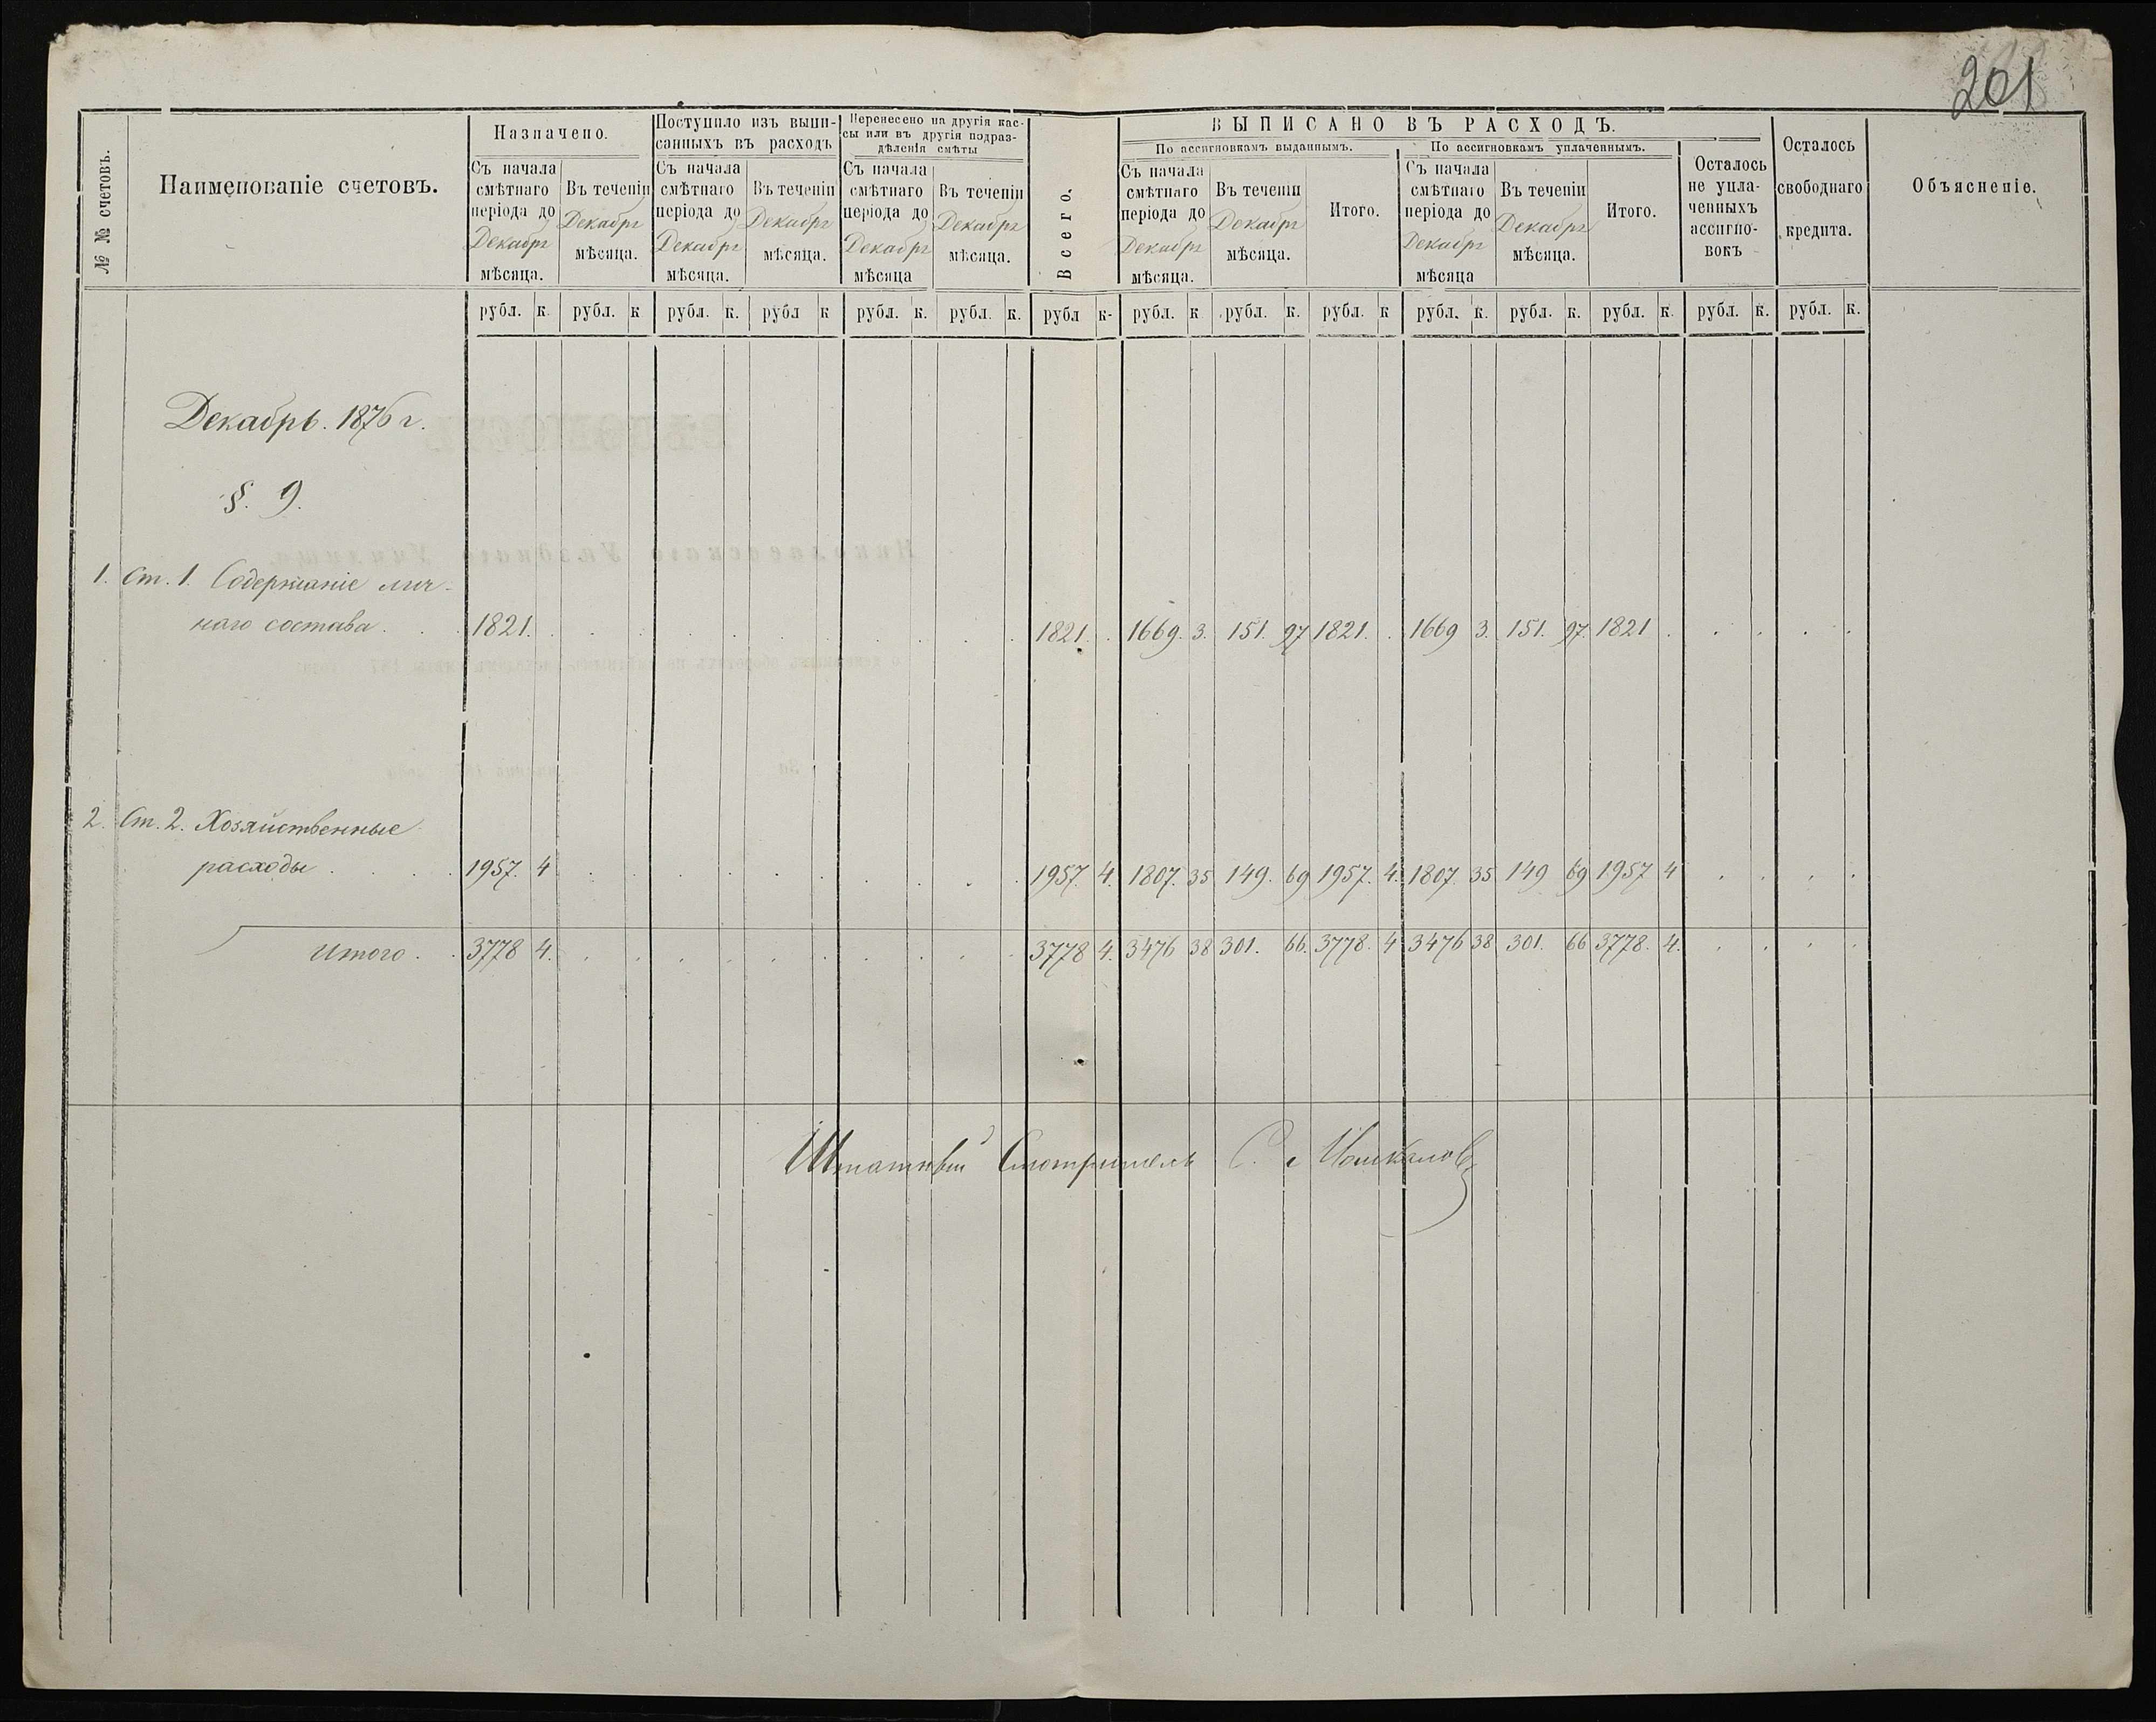 201
№ № счетовъ.
Наименованіе счетовъ.
Назначено.
Съ начала смѣтнаго періода до Декабря мѣсяца.
Въ теченіи Декабря мѣсяца.
Поступило изъ выписанныхъ въ расходъ
Съ начала смѣтнаго періода до Декабря мѣсяца.
Въ теченіи Декабря мѣсяца.
Перенесено на другія кассы или въ другія подраздѣленія смѣты
Съ начала смѣтнаго періода до Декабря мѣсяца
Въ теченіи Декабря мѣсяца.
Всего.
ВЫПИСАНО ВЪ РАСХОДЪ.
По ассигновкамъ выданнымъ.
Съ начала смѣтнаго періода до Декабря мѣсяца.
Въ теченіи Декабря мѣсяца.
Итого.
По ассигновкамъ уплаченнымъ.
Съ начала смѣтнаго періода до Декабря мѣсяца
Въ теченіи Декабря мѣсяца.
Итого.
Осталось не уплаченныхъ ассигновокъ
Осталось свободнаго кредита.
Объясненіе.
рубл. к. рубл. к рубл. к. рубл к рубл. к. рубл. к. рубл к- рубл. к рубл. к. рубл. к рубл. к. рубл. к. рубл. к. рубл. к. рубл. к.
Декабрь. 1876 г.
§. 9.
1. Ст. 1. Содержаніе лич-
наго состава . . . 1821. 1821. 1669. 3. 151. 97 1821. 1669 3. 151. 97. 1821
2. Ст. 2. Хозяйственные
расходы . . . . 1957. 4 1957. 4. 1807. 35 149. 69 1957. 4. 1807. 35 149 69 1957 4
Итого . . 3778 4. 3778 4. 3476 38 301. 66. 3778. 4 3476 38 301. 66 3778. 4.
Штатный Смотритель С.